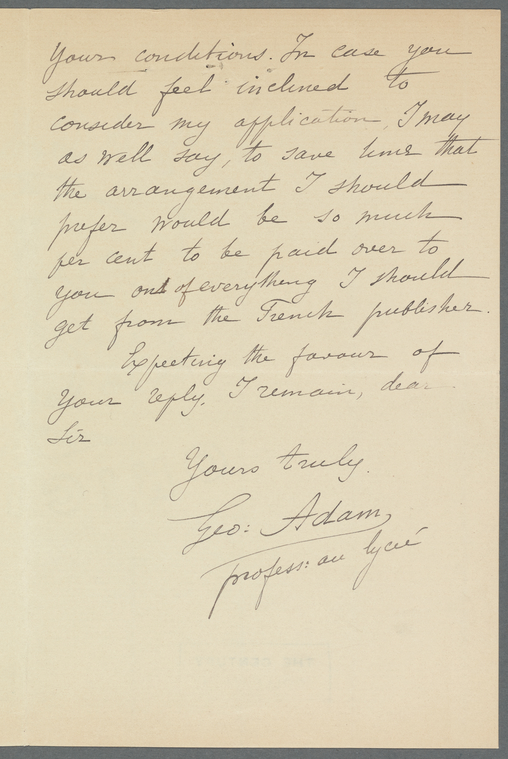 your conditions. In case you
should feel inclined to
consider my application, I may
as well say, to save time that
the arrangement I should
prefer would be so much
per cent to be paid over to
you out of everything I should
get from the French publisher.
Expecting the favour of
your reply. I remain, dear
Sir
Yours truly.
Geo: Adam,
profess: au lycée